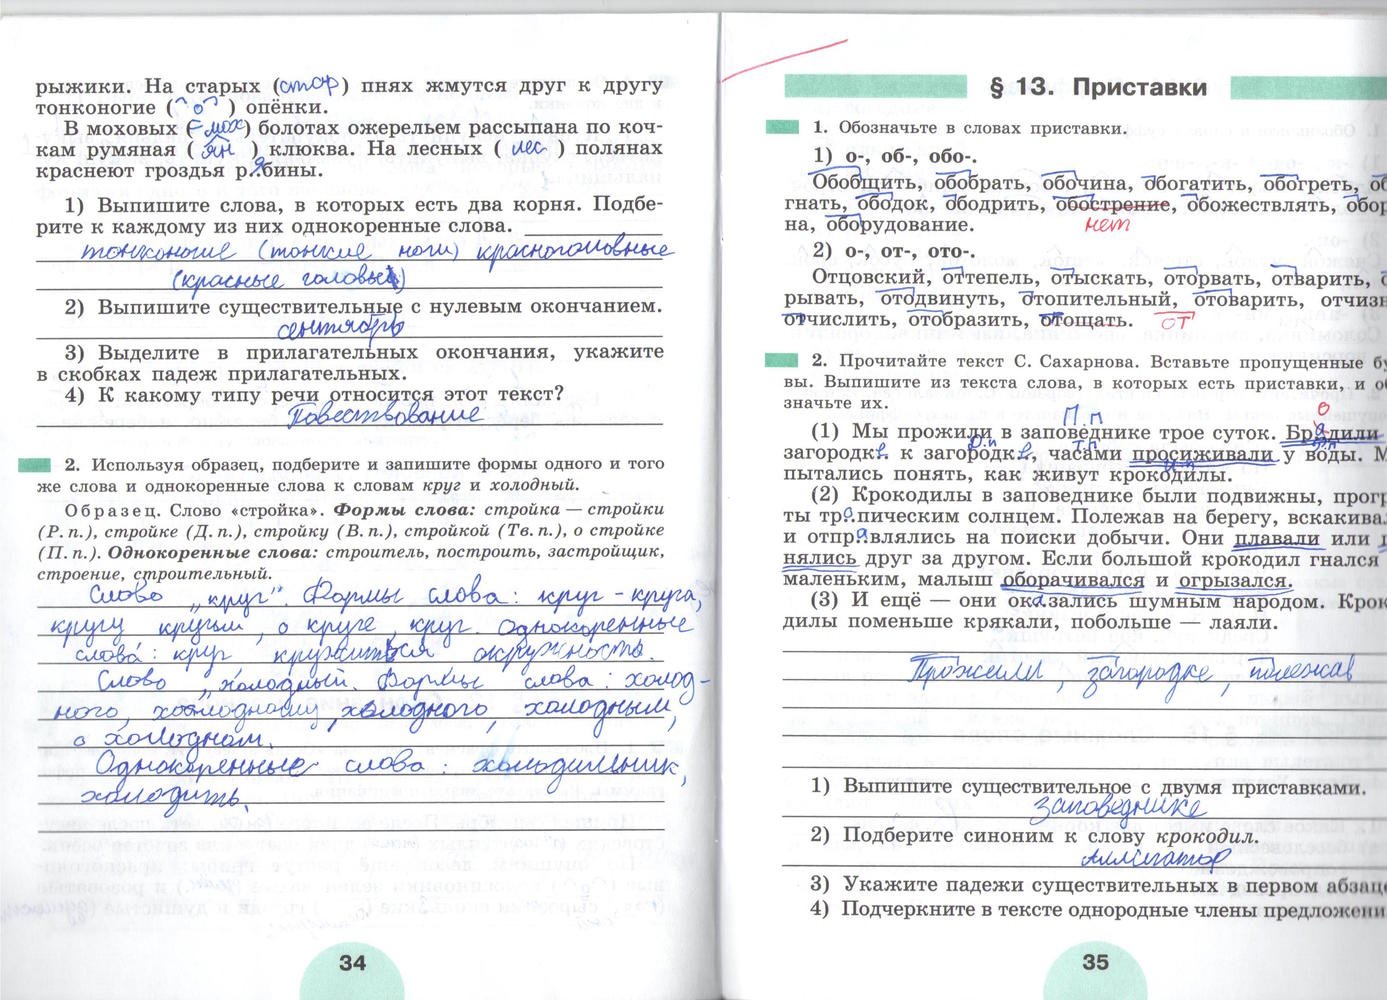 рыжики. На старых (стар) пнях жмутся друг к другу
тонконогие ( о ) опёнки.
В моховых (мох) болотах ожерельем рассыпана по коч-
кам румяная ( ян ) клюква. На лесных ( лес ) полянах
краснеют гроздья рябины.
1) Выпишите слова, в которых есть два корня. Подбе-
рите к каждому из них однокоренные слова.
тонконогие (тонкие ноги) красноголовные
(красные головы)
2) Выпишите существительные с нулевым окончанием.
сентябрь
3) Выделите в прилагательных окончания, укажите
в скобках падеж прилагательных.
4) К какому типу речи относится этот текст?
Повествование
2. Используя образец, подберите и запишите формы одного и того
же слова и однокоренные слова к словам круг и холодный.
Образец. Слово «стройка». Формы слова: стройка — стройки
(Р. п.), стройке (Д. п.), стройку (В. п.), стройкой (Тв. п.), о стройке
(П. п.). Однокоренные слова: строитель, построить, застройщик,
строение, строительный.
Слово „круг". Формы слова: круг - круга,
кругу кругым, о круге, круг. Однокоренные
слова: круг кружиться окружность.
Слово „холодный. Формы слова: холод-
ного, холодному, холодного, холодным,
о холодном.
Однокоренные слова: холодильник,
холодить.
34
§ 13. Приставки
1. Обозначьте в словах приставки.
1) о-, об-, обо-.
Обобщить, обобрать, обочина, обогатить, обогреть, об
гнать, ободок, ободрить, обострение, обожествлять, обор
на, оборудование. нет
2) о-, от-, ото-.
Отцовский, оттепель, отыскать, оторвать, отварить, о
рывать, отодвинуть, отопительный, отоварить, отчизн
отчислить, отобразить, отощать. от
2. Прочитайте текст С. Сахарнова. Вставьте пропущенные бу
вы. Выпишите из текста слова, в которых есть приставки, и о
значьте их.
о
П.п
(1) Мы прожили в заповеднике трое суток. Брадили
Д.п Т.п Р.п
загородке к загородке, часами просиживали у воды. М
И.п
пытались понять, как живут крокодилы.
(2) Крокодилы в заповеднике были подвижны, прогр
ты тропическим солнцем. Полежав на берегу, вскакива
и отправлялись на поиски добычи. Они плавали или
нялись друг за другом. Если большой крокодил гнался
маленьким, малыш оборачивался и огрызался.
(3) И ещё — они оказались шумным народом. Крок
дилы поменьше крякали, побольше — лаяли.
Прожили, загородке, полежав
1) Выпишите существительное с двумя приставками.
заповеднике
2) Подберите синоним к слову крокодил.
аллигатор
3) Укажите падежи существительных в первом абзаце
4) Подчеркните в тексте однородные члены предложени
35